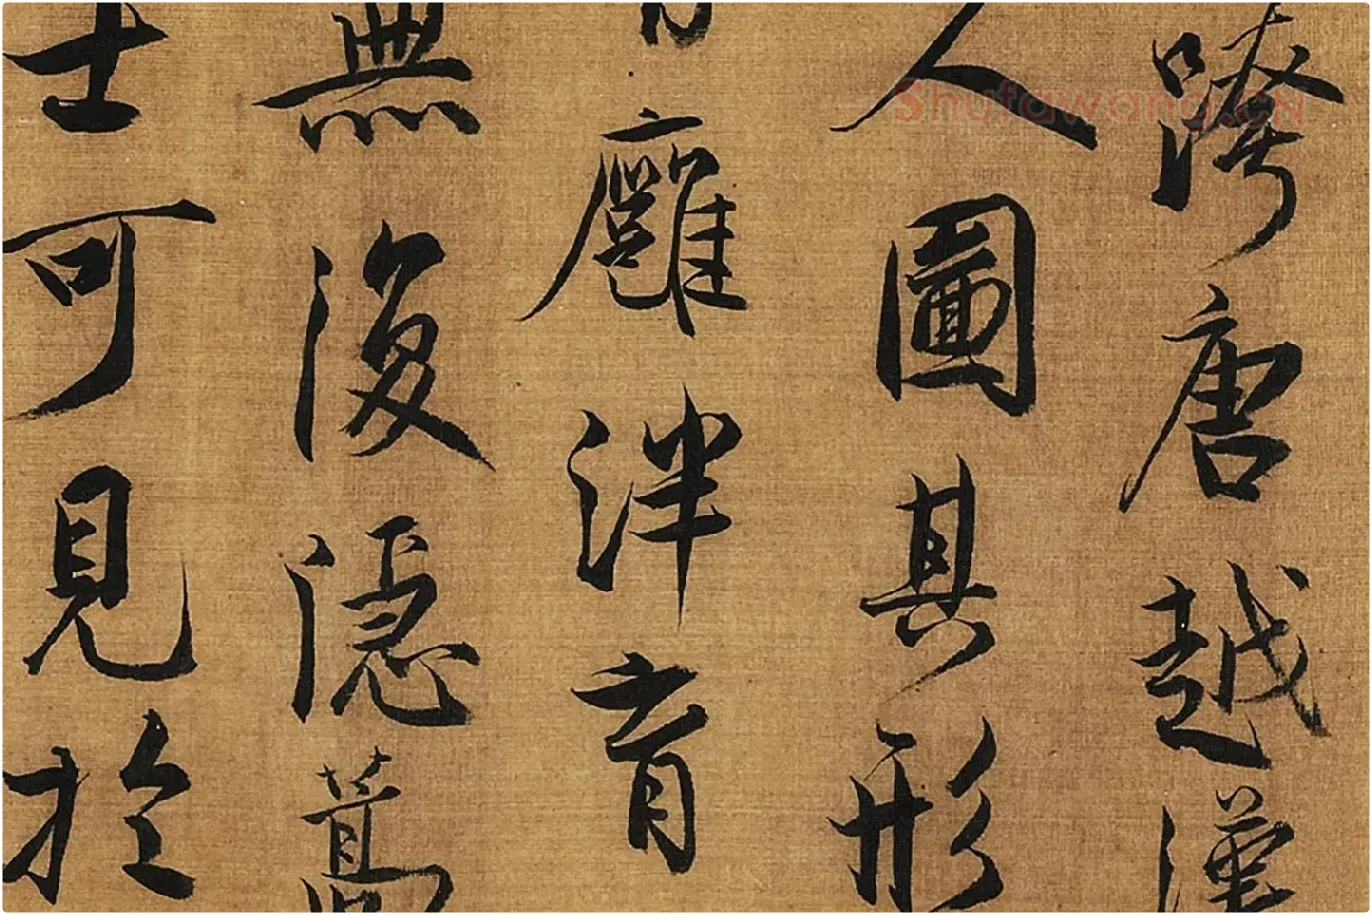 跨唐越漢
人圖其形
廱泮育
無復隱
士可見於
Shufawang.CN